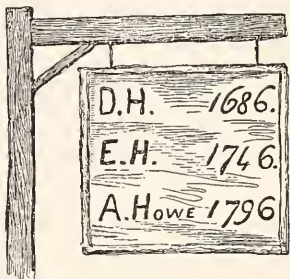 D.H. 1686.
E.H. 1746.
A.Howe 1796